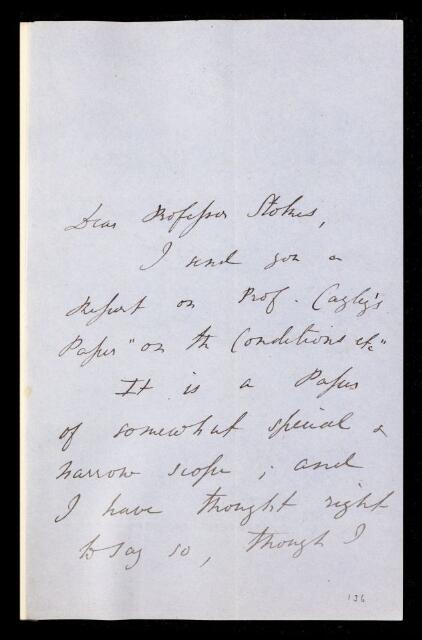 Dear Professor Stokes,
I send you a
Report on Prof. Cayley's
Paper "on the Conditions etc"
It is a Paper
of somewhat special &
narrow scope ; and
I have thought right
to say so, though I
136